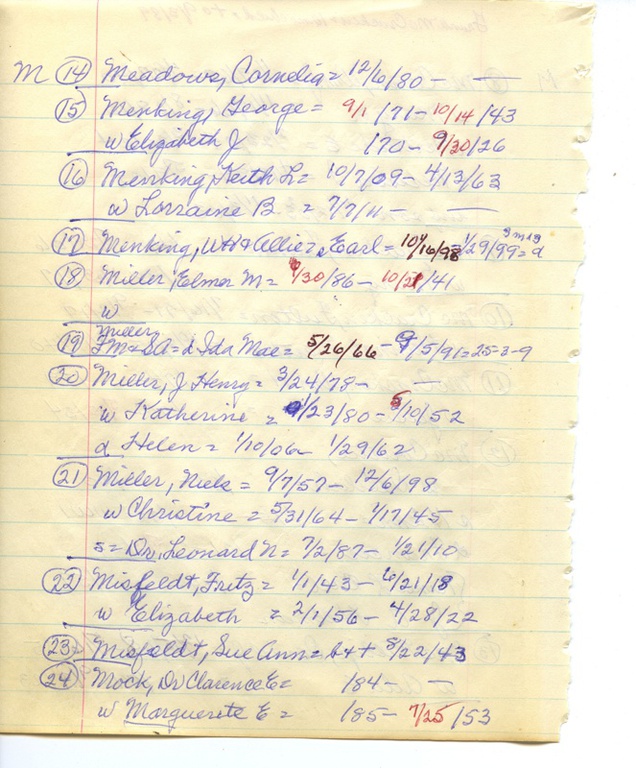 M (14) Meadows, Cornelia = 12/6/80 - —
(15) Menking, George = 9/1/71 - 10/14/43
w Elizabeth J /70 - 9/30/26
(16) Menking, Keith L = 10/7/09 - 4/13/63
w Lorraine B = 7/7/11 - —
3 m 13
(17) Menking, WH & Allie = Earl = 10/16/98 = 1/29/99 = d
(18) Miller, Elmer M = 6/30/86 - 10/21/41
w
Miller
(19) FM = SA = d Ida Mae = 5/26/66 - 9/5/91 = 25-3-9
20 Miller, J Henry = 3/24/78 - —
w Katherine = /23/80 - 5/10/52
d Helen = 1/10/06 - 1/29/62
(21) Miller, Niels = 9/7/57 - 12/6/98
w Christine = 5/31/64 - 1/17/45
s = Dr. Leonard N = 7/2/87 - 1/21/10
(22) Misfeldt, Fritz = 1/1/43 - 6/21/18
w Elizabeth = 2/1/56 - 4/28/22
(23) Misfeldt, Sue Ann = b + + 5/22/43
(24) Mock, Dr Clarence E = /84 - —
w Marguerete E = /85 - 7/25/53